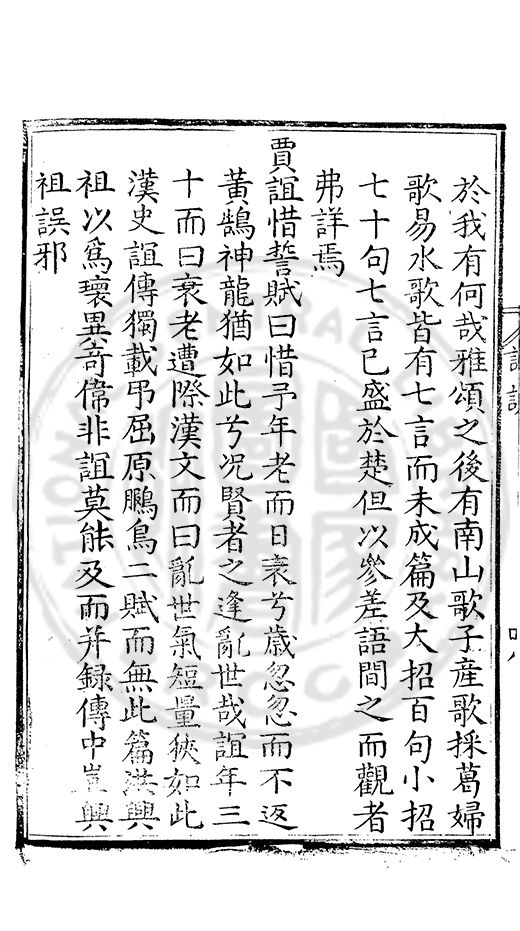 於我有何哉雅頌之後有南山歌子產歌採葛婦
歌易水歌皆有七言而未成篇及大招百句小招
七十句七言已盛於楚但以參差語間之而觀者
弗詳焉
賈誼惜誓賦曰惜予年老而日衰兮歲忽忽而不返
黃鵠神龍猶如此兮况賢者之逢亂世哉誼年三
十而曰衰老遭際漢文而曰亂世氣短量狹如此
漢史誼傳獨載弔屈原鵩鳥二賦而無此篇洪興
祖以爲瓌異奇偉非誼莫能及而并録傳中豈興
祖誤邪